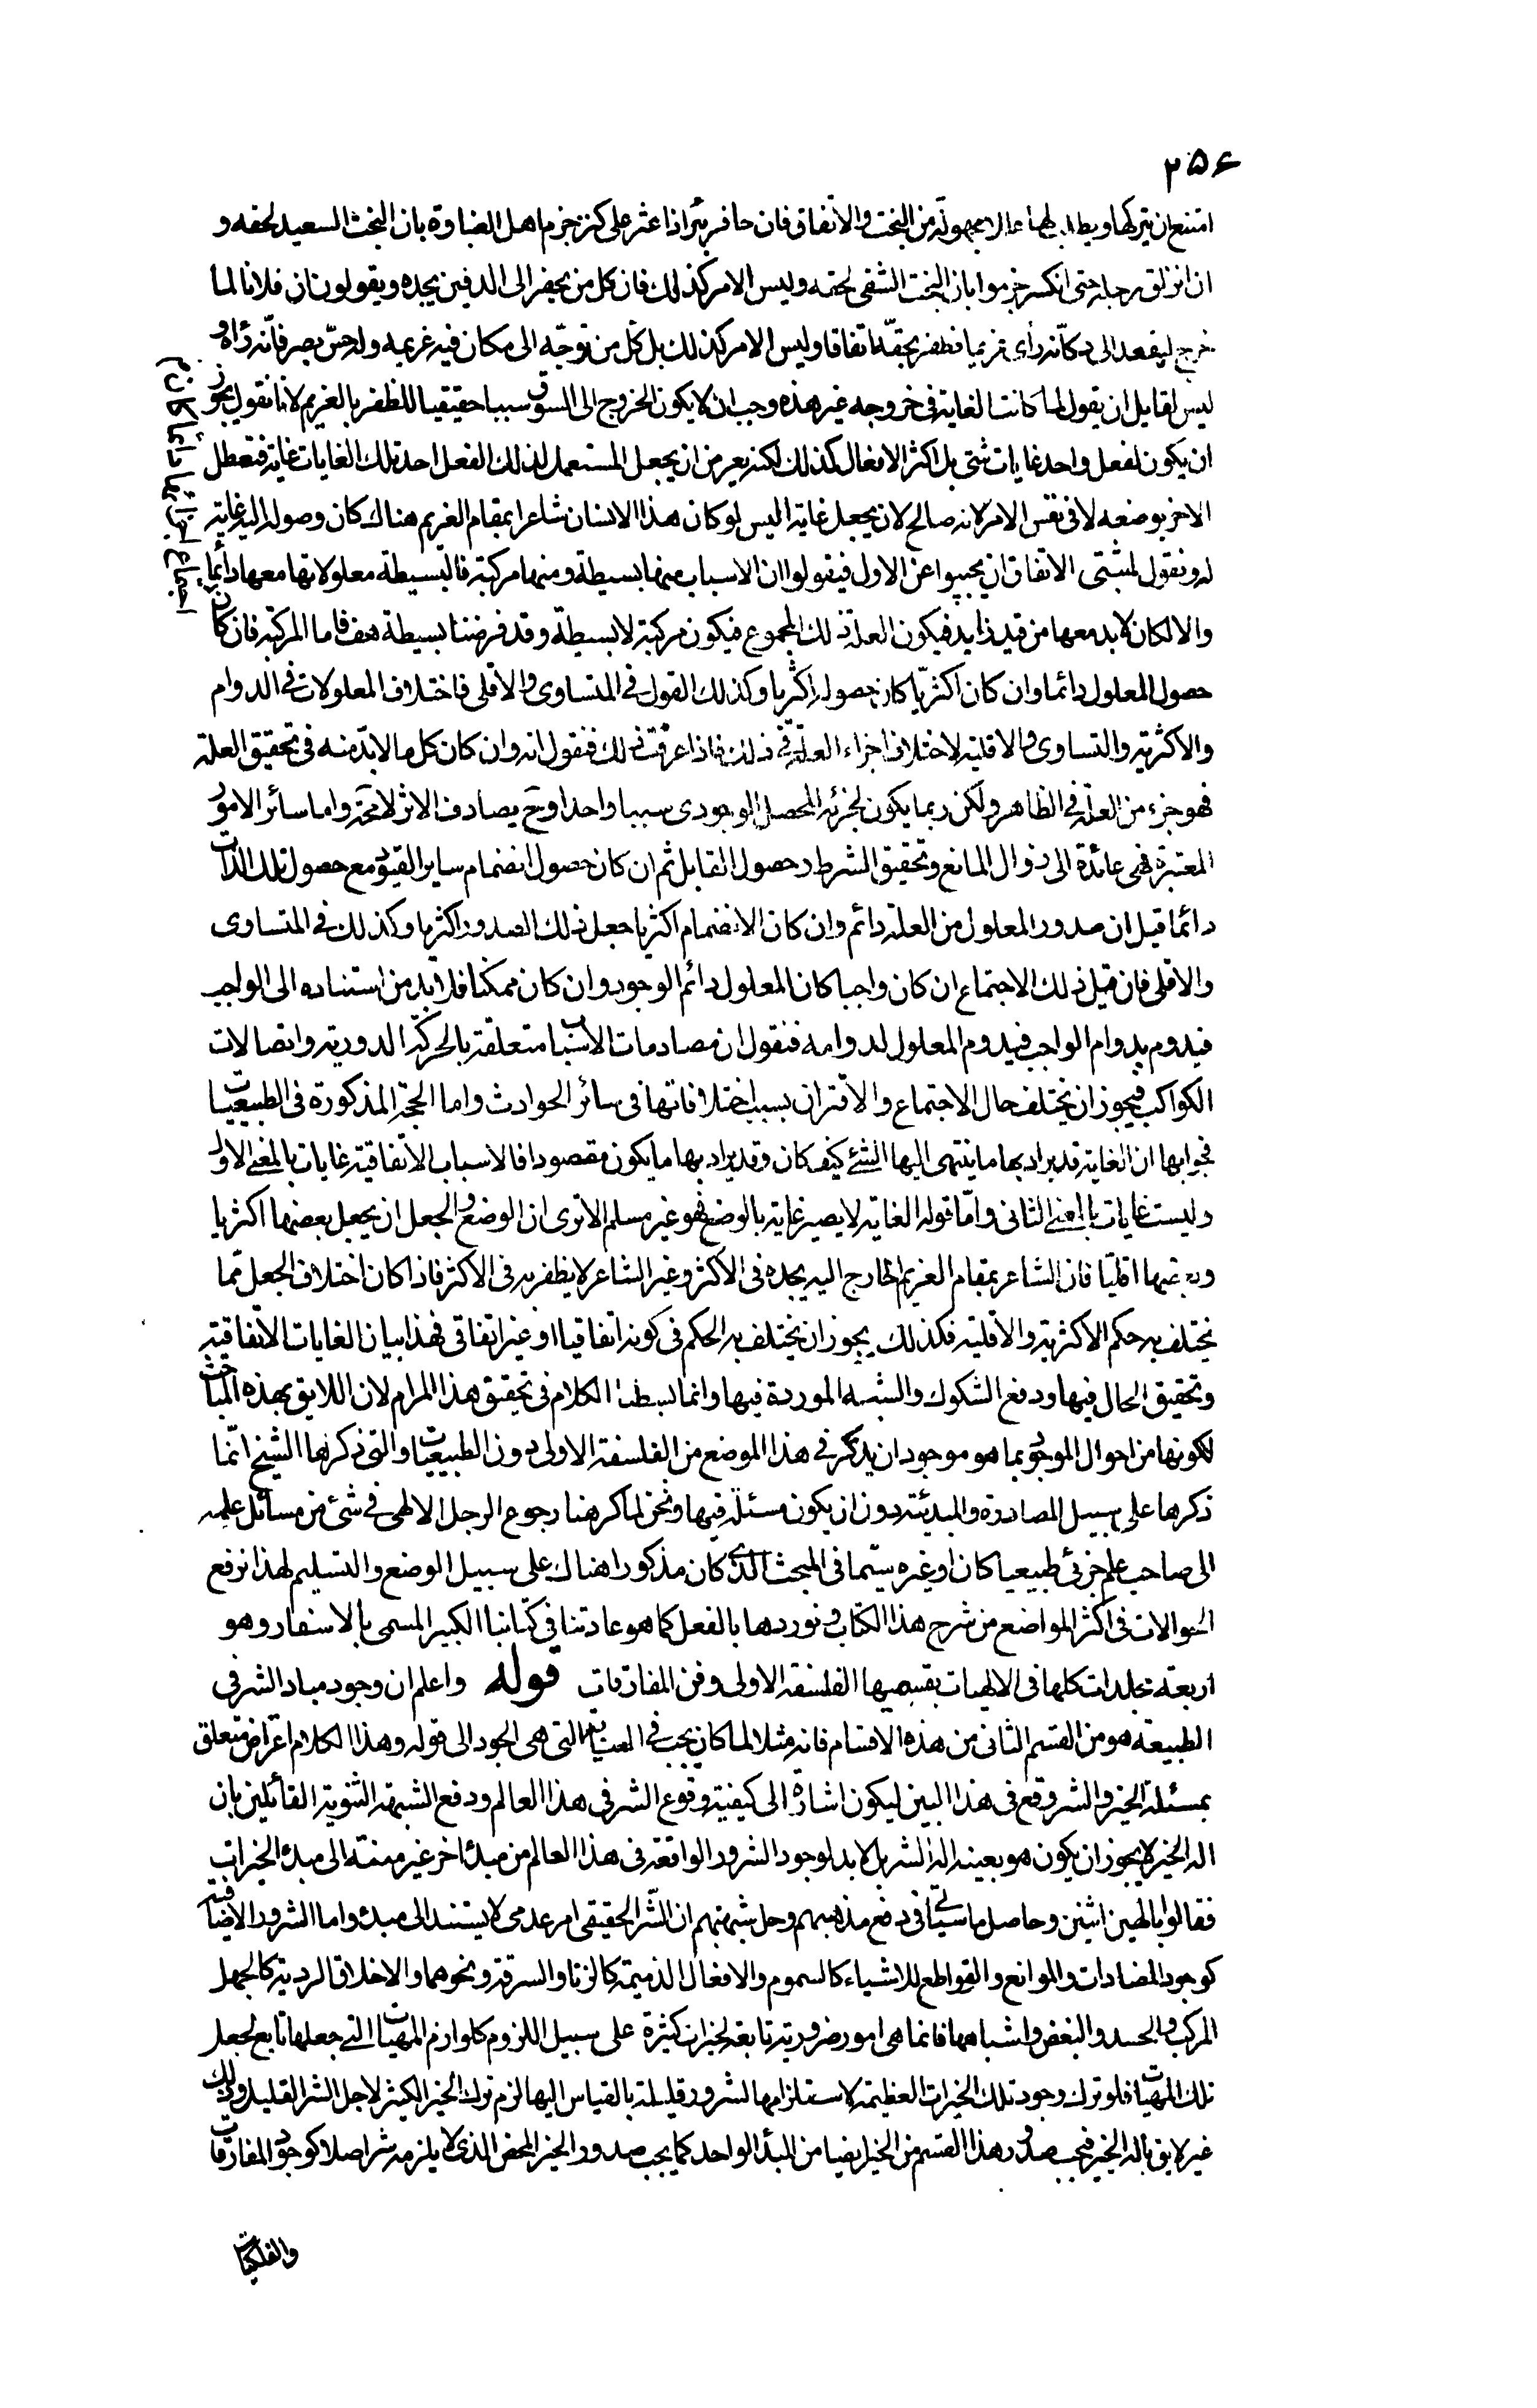 ۲۵۶
امتنع ان يتركها ويطلب لها عللا مجهولة من البخت والاتفاق فان حافر بئر اذا عثر على كنز جزم اهل الغباوة بان البخت السعيد لحقه و
ان انزلق رجله حتى انكسر جزموا بان البخت الشقى لحقه وليس الامر كذلك فان كل من يحفر الى الدفين يجده ويقولون ان فلانا لما
خرج ليقعد الى دكانه رأى غريما فظفر بحقه اتفاقا وليس الامر كذلك بل كل من توجه الى مكان فيه غريمه وله حس بصر فانه رآه و
ليس لقايل ان يقول لما كانت الغاية فى خروجه غير هذه وجب ان لا يكون الخروج الى السوق سببا حقيقيا للظفر بالغريم لانا نقول يجوز
ان يكون لفعل واحد غايات شتى بل اكثر الافعال كذلك لكنه يعرض ان يجعل المستعمل لذلك الفعل احد تلك الغايات غاية فتعطل
الاخر بوضعه لا فى نفس الامر لانه صالح لان يجعل غاية اليس لو كان هذا الانسان شاعرا بمقام الغريم هناك كان وصوله اليه غاية
له ونقول لمثبتى الاتفاق ان يجيبوا عن الاول فيقولوا ان الاسباب منها بسيطة ومنها مركبة فالبسيطة معلولاتها معها دائما
والا لكان لا بد معها من قيد زايد فيكون العلة ذلك المجموع فيكون مركبة لا بسيطة وقد فرضنا بسيطة هف فاما المركبة فان كان
اجتماع اجزائها دائما كان
حصول المعلول دائما وان كان اكثريا كان حصوله اكثريا وكذلك القول فى المتساوى والاقلى فاختلاف المعلولات فى الدوام
والاكثرية والتساوى والاقلية لاختلاف اجزاء العلة فى ذلك فاذا عرفت ذلك فنقول انه وان كان كل ما لا بد منه فى تحقيق العلة
فهو جزء من العلة فى الظاهر ولكن ربما يكون لجزئه المحصل الوجودى سببا واحدا وح يصادف الاثر لا محة واما سائر الامور
المعتبرة فهى عائدة الى زوال المانع وتحقيق الشرط وحصول القابل ثم ان كان حصول انضمام ساير القيود مع حصول تلك الذات
دائما قيل ان صدور المعلول من العلة دائم وان كان الانضمام اكثريا جعل ذلك الصدور اكثريا وكذلك فى المتساوى
والاقلى فان قيل ذلك الاجتماع ان كان واجبا كان المعلول دائم الوجود وان كان ممكنا فلا بد من استناده الى الواجب
فيدوم بدوام الواجب فيدوم المعلول لدوامه فنقول ان مصادمات الاسباب متعلقة بالحركة الدورية واتصالات
الكواكب فيجوز ان يختلف حال الاجتماع والاقتران بسبب اختلافاتها فى سائر الحوادث واما الحجة المذكورة فى الطبيعيات
فجوابها ان الغاية قد يراد بها ما ينتهى اليها الشئ كيف كان وقد يراد بها ما يكون مقصودا فالاسباب الاتفاقية غايات بالمعنى الاول
وليست غايات بالمعنى الثانى واما قوله الغاية لا يصير غاية بالوضع فهو غير مسلم الا ترى ان الوضع والجعل ان يجعل بعضها اكثريا
وبعضها اقليا فان الشاعر بمقام الغريم الخارج اليه يجده فى الاكثر وغير الشاعر لا يظفر به فى الاكثر فاذا كان اختلاف الجعل مما
يختلف به حكم الاكثرية والاقلية فكذلك يجوز ان يختلف به الحكم فى كونه اتفاقيا او غير اتفاقى فهذا بيان الغايات الاتفاقية
وتحقيق الحال فيها ودفع الشكوك والشبه الموردة فيها وانما بسطنا الكلام فى تحقيق هذا المرام لان اللايق بهذه المباحث
لكونها من احوال الموجود بما هو موجود ان يذكر فى هذا الموضع من الفلسفة الاولى دون الطبيعيات والتى ذكرها الشيخ انما
ذكرها على سبيل المصادرة والمبدئية دون ان يكون مسئلة فيها ونحن لما كرهنا رجوع الرجل الالهى فى شئ من مسائل علمه
الى صاحب علم جزئى طبيعيا كان او غيره سيما فى المبحث الذى كان مذكورا هناك على سبيل الوضع والتسليم لهذا نرفع
الحوالات فى اكثر المواضع من شرح هذا الكتاب ونوردها بالفعل كما هو عادتنا فى كتابنا الكبير المسمى بالاسفار وهو
اربعة مجلدات كلها فى الالهيات بقسميها الفلسفة الاولى وفن المفارقات قوله واعلم ان وجود مباد الشر فى
الطبيعة هو من القسم الثانى من هذه الاقسام فانه مثلا لما كان يجب فى العناية التى هى الجود الى قوله وهذا الكلام اعتراض متعلق
بمسئلة الخير والشر وقع فى هذا البين ليكون اشارة الى كيفية وقوع الشر فى هذا العالم ودفع الشبهة الثنوية القائلين بان
اله الخير لا يجوز ان يكون هو بعينه اله الشر بل لا بد لوجود الشرور الواقعة فى هذا العالم من مبدء اخر غير منته الى مبدء الخيرات
فقالوا بالهين اثنين وحاصل ما سيأتى فى دفع مذهبهم وحل شبهتهم ان الشر الحقيقى امر عدمى لا يستند الى مبدء واما الشرور الاضافية
كوجود المضادات والموانع والقواطع للاشياء كالسموم والافعال الذميمة كالزنا والسرقة ونحوهما والاخلاق الردية كالجهل
المركب والحسد والبغض واشباهها فانما هى امور ضرورية تابعة لخيرات كثيرة على سبيل اللزوم كلوازم المهيات التى جعلها تابع لجعل
تلك المهيات فلو ترك وجود تلك الخيرات العظيمة لاستلزامها لشرور قليلة بالقياس اليها لزم ترك الخير الكثير لاجل الشر القليل وذلك
غير لايق باله الخير فيجب صدور هذا القسم من الخير ايضا من المبدأ الواحد كما يجب صدور الخير المحض الذى لا يلزمه شر اصلا كوجود المفارقات
والفلكيات